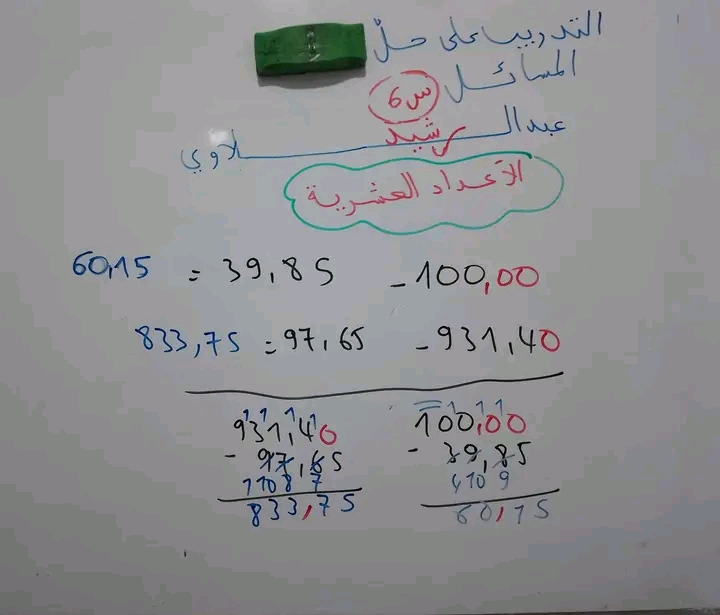 التدريب على حلّ
المسائل س6
عبد الرشيد لاوي
الأعداد العشرية
60,15 = 39,85 - 100,00
833,75 = 97,65 - 931,40
1 1 1 1
931,40
- 97,65
1 10 8 7
833,75
1 1 1
100,00
- 39,85
4 10 9
60,15